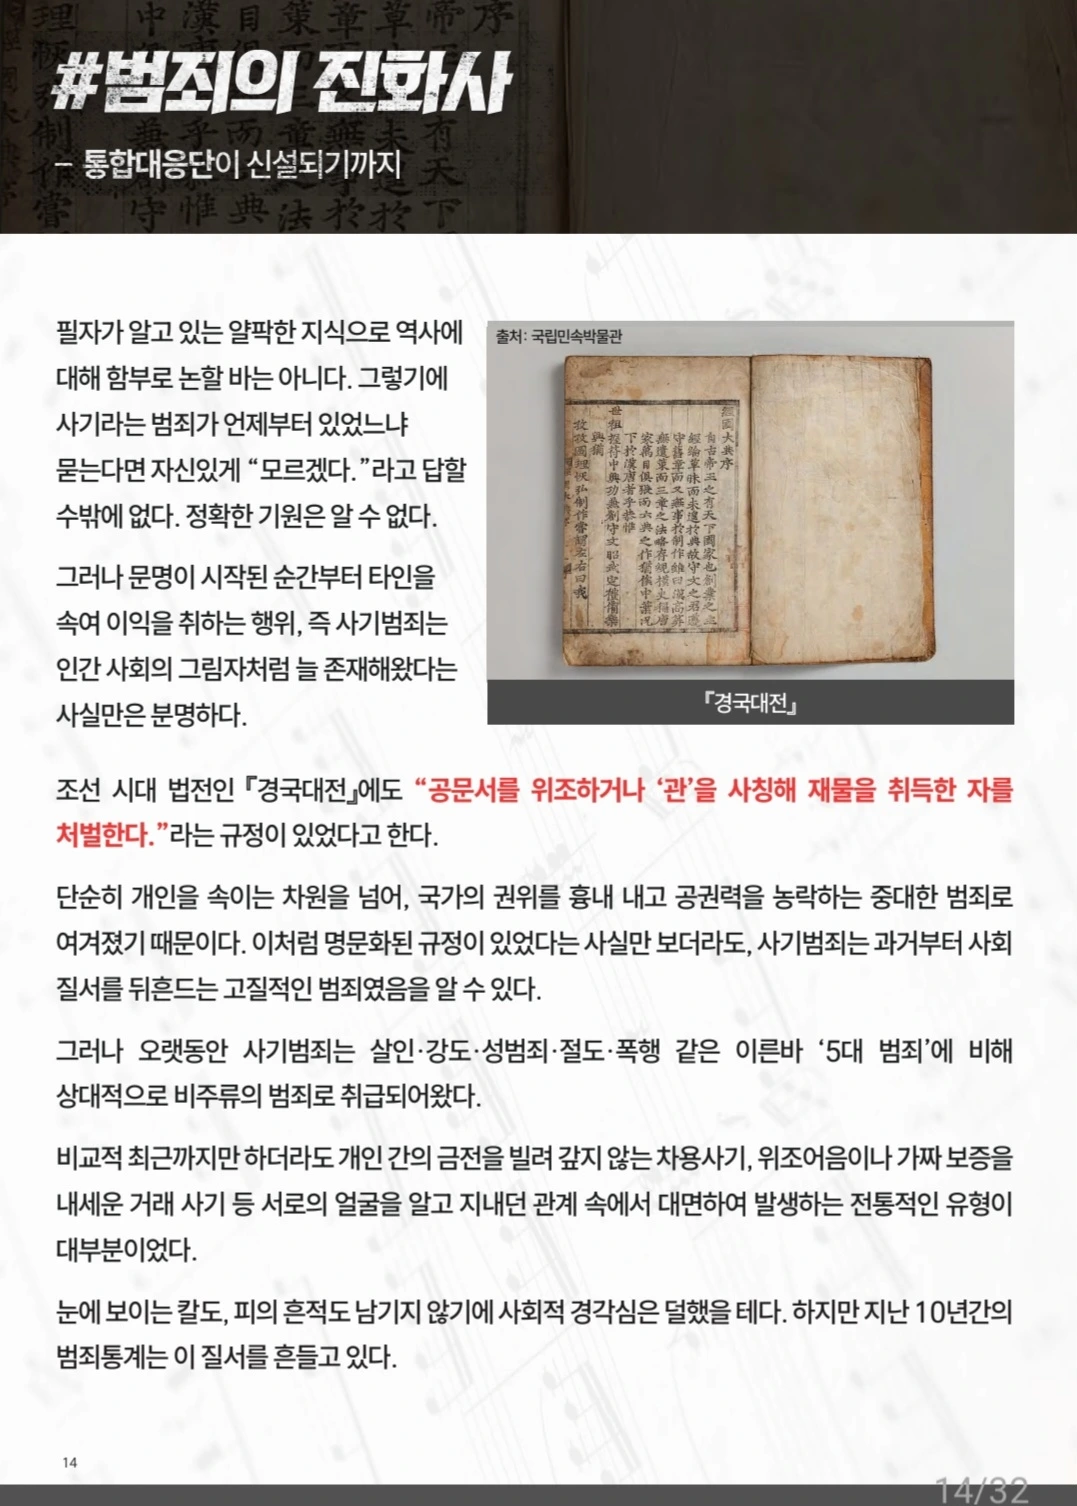 #범죄의 진화사
- 통합대응단이 신설되기까지
필자가 알고 있는 얄팍한 지식으로 역사에
대해 함부로 논할 바는 아니다. 그렇기에
사기라는 범죄가 언제부터 있었느냐
묻는다면 자신있게 “모르겠다.”라고 답할
수밖에 없다. 정확한 기원은 알 수 없다.
그러나 문명이 시작된 순간부터 타인을
속여 이익을 취하는 행위, 즉 사기범죄는
인간 사회의 그림자처럼 늘 존재해왔다는
사실만은 분명하다.
출처: 국립민속박물관
經國大典序
『경국대전』
조선 시대 법전인 『경국대전』에도 “공문서를 위조하거나 ‘관’을 사칭해 재물을 취득한 자를
처벌한다.”라는 규정이 있었다고 한다.
단순히 개인을 속이는 차원을 넘어, 국가의 권위를 흉내 내고 공권력을 농락하는 중대한 범죄로
여겨졌기 때문이다. 이처럼 명문화된 규정이 있었다는 사실만 보더라도, 사기범죄는 과거부터 사회
질서를 뒤흔드는 고질적인 범죄였음을 알 수 있다.
그러나 오랫동안 사기범죄는 살인·강도·성범죄·절도·폭행 같은 이른바 ‘5대 범죄’에 비해
상대적으로 비주류의 범죄로 취급되어왔다.
비교적 최근까지만 하더라도 개인 간의 금전을 빌려 갚지 않는 차용사기, 위조어음이나 가짜 보증을
내세운 거래 사기 등 서로의 얼굴을 알고 지내던 관계 속에서 대면하여 발생하는 전통적인 유형이
대부분이었다.
눈에 보이는 칼도, 피의 흔적도 남기지 않기에 사회적 경각심은 덜했을 테다. 하지만 지난 10년간의
범죄통계는 이 질서를 흔들고 있다.
14
14/32